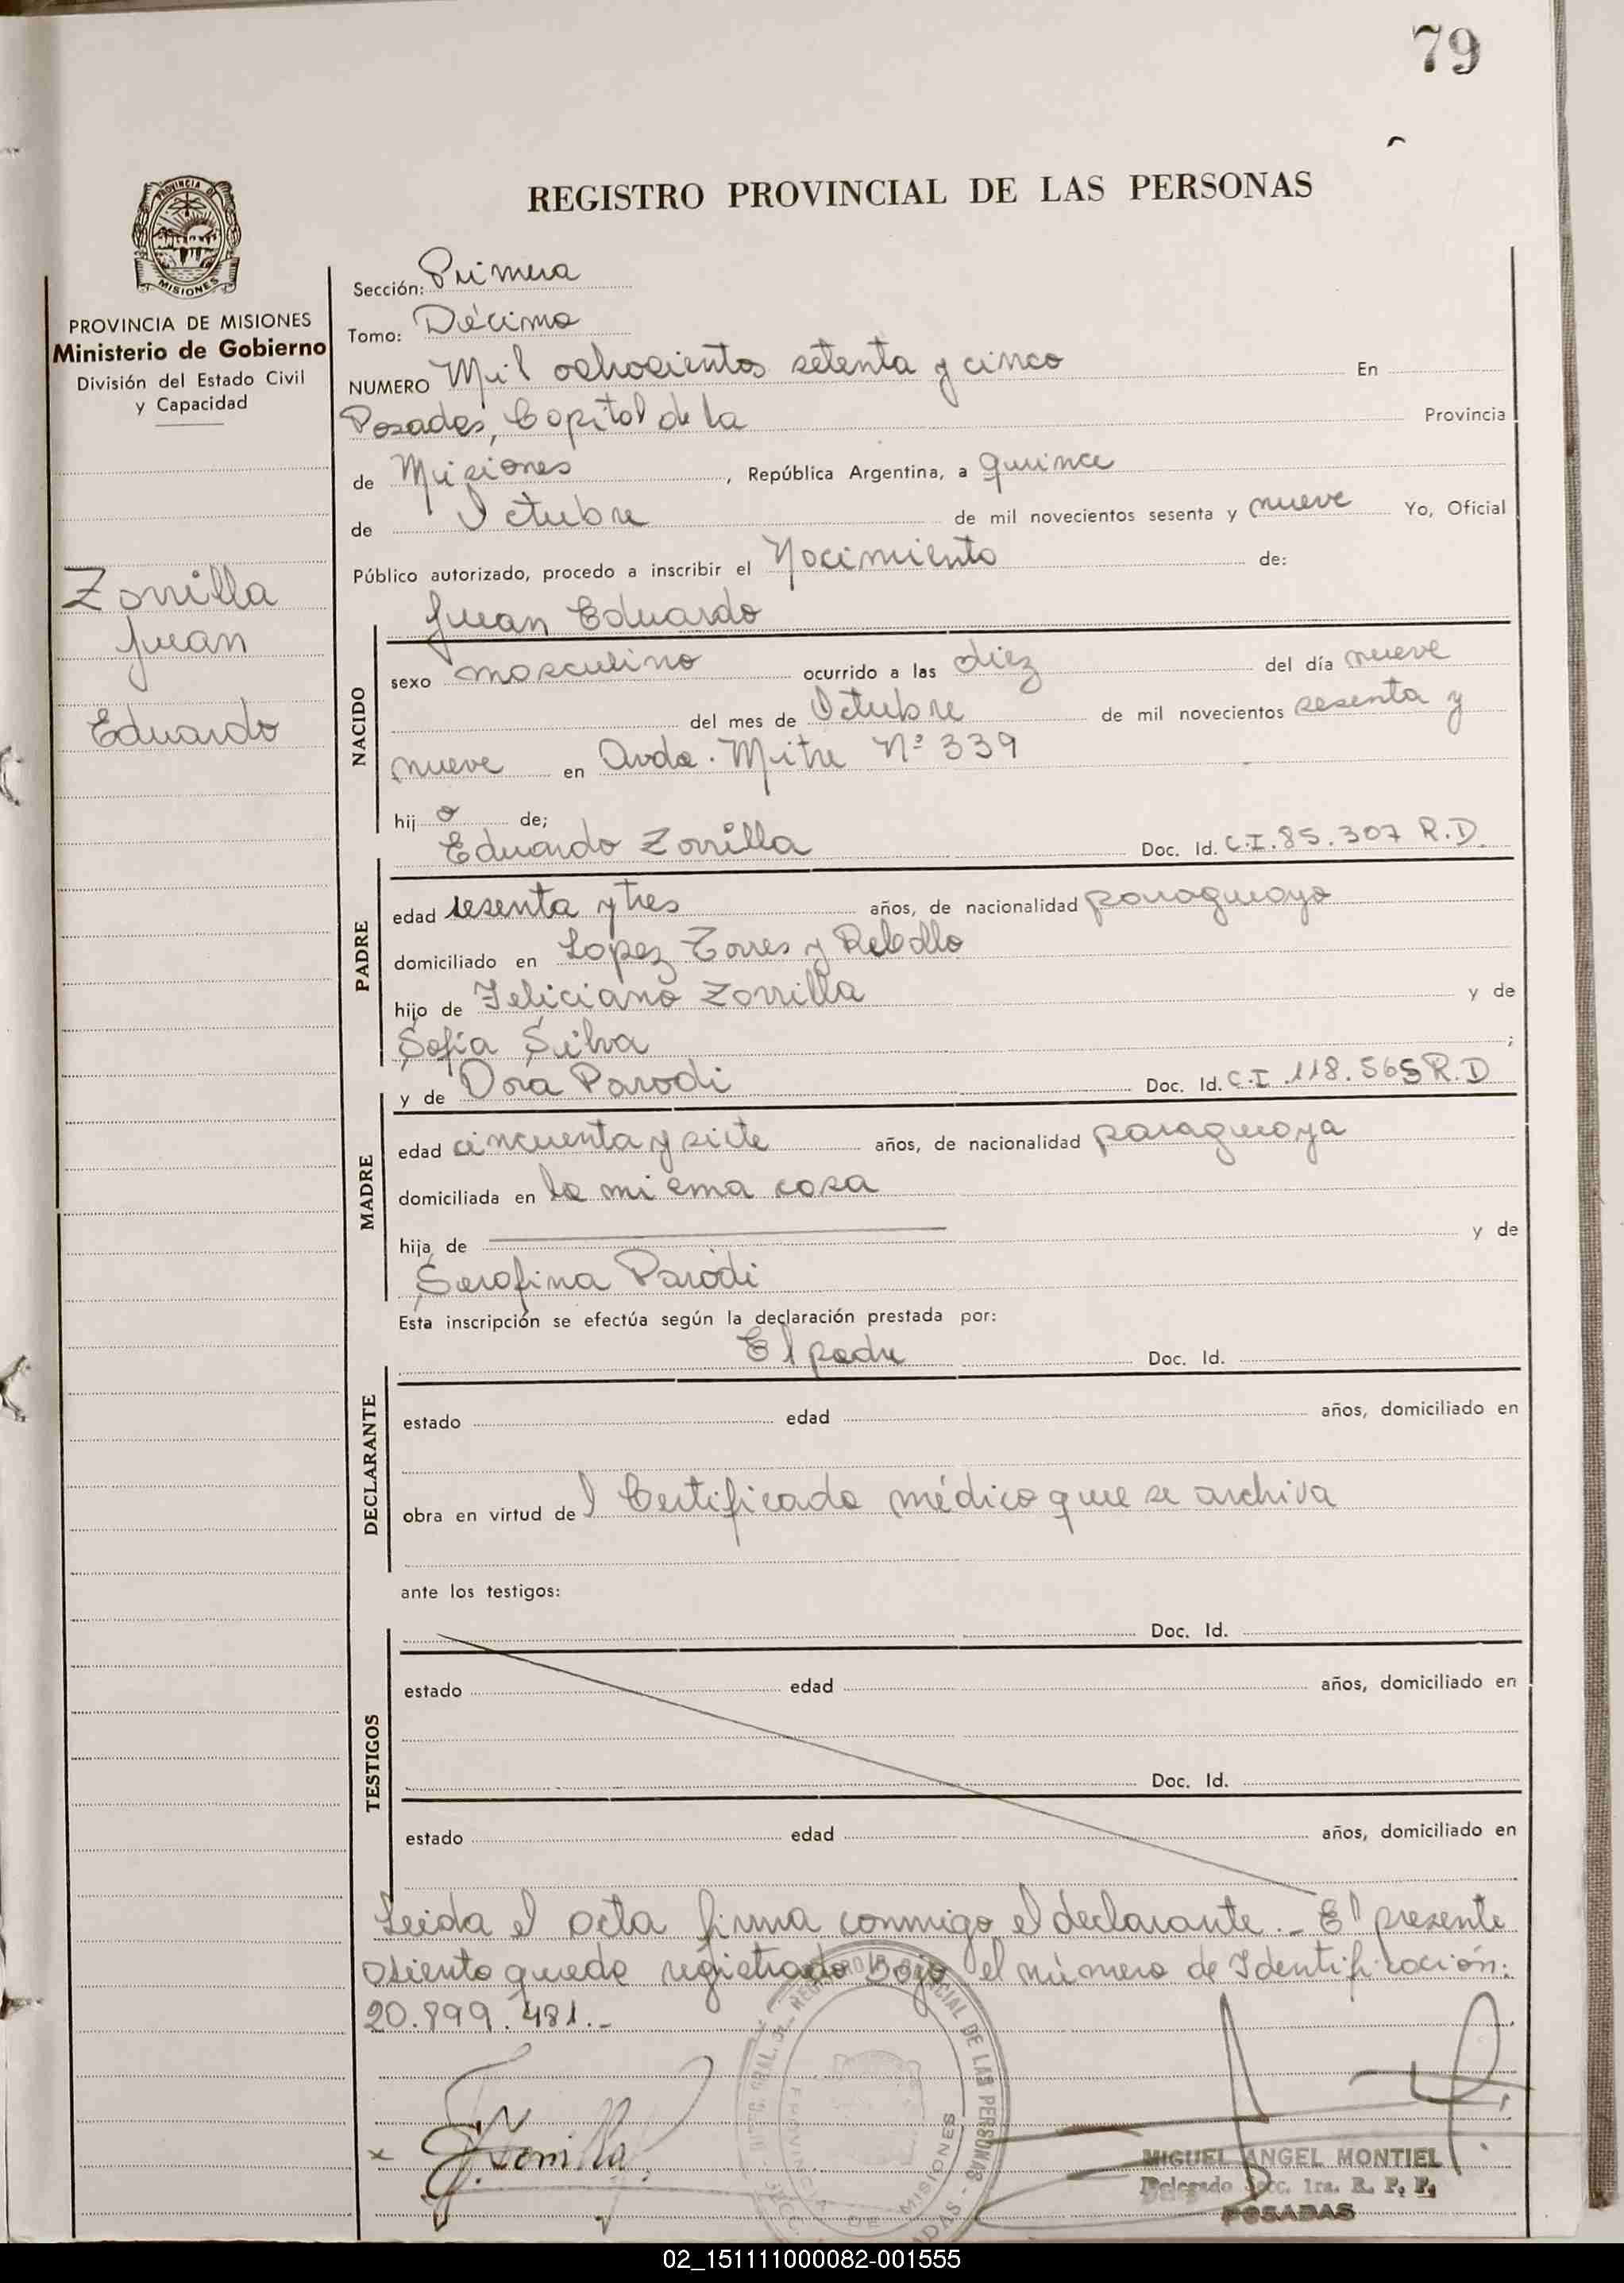 79
REGISTRO PROVINCIAL DE LAS PERSONAS
PROVINCIA DE
MISIONES
PROVINCIA DE MISIONES
Ministerio de Gobierno
División del Estado Civil
y Capacidad
Zorrilla
Juan
Eduardo
Sección: Primera
Tomo: Décimo
NUMERO Mil ochocientos setenta y cinco En
Posadas, Capital de la Provincia
de Misiones, República Argentina, a quince
de Octubre de mil novecientos sesenta y nueve Yo, Oficial
Público autorizado, procedo a inscribir el Nacimiento de:
Juan Eduardo
NACIDO
sexo masculino ocurrido a las diez del día nueve
del mes de Octubre de mil novecientos sesenta y
nueve en Avda. Mitre Nº 339
hijo de;
Eduardo Zorrilla Doc. Id. C.I. 85.307 R.D.
PADRE
edad sesenta y tres años, de nacionalidad paraguayo
domiciliado en Lopez Torres y Rebollo
hijo de Feliciano Zorrilla y de
Sofía Silva ;
y de Dora Parodi Doc. Id. C.I. 118.565 R.D
MADRE
edad cincuenta y siete años, de nacionalidad paraguaya
domiciliada en la misma casa
hija de y de
Serafina Parodi
Esta inscripción se efectúa según la declaración prestada por:
El padre Doc. Id.
DECLARANTE
estado edad años, domiciliado en
obra en virtud del Certificado médico que se archiva
ante los testigos:
Doc. Id.
TESTIGOS
estado edad años, domiciliado en
Doc. Id.
estado edad años, domiciliado en
Leida el acta firma conmigo el declarante.- El presente
asiento queda registrado bajo el número de Identificación:
20.899.481.-
x E. Zorrilla
REGISTRO PROVINCIAL DE LAS PERSONAS
PROVINCIA DE MISIONES
MIGUEL ANGEL MONTIEL
Delegado Secc. 1ra. R. P. P.
POSADAS
02_151111000082-001555